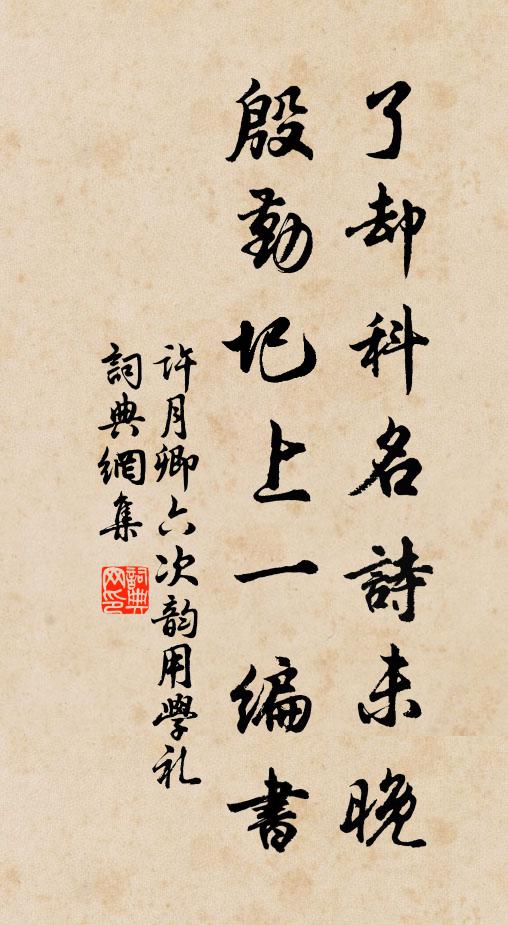 了却科名詩未晚
殷勤圯上一編書
許月卿六次韵用學礼
詞典網集
詞典网印